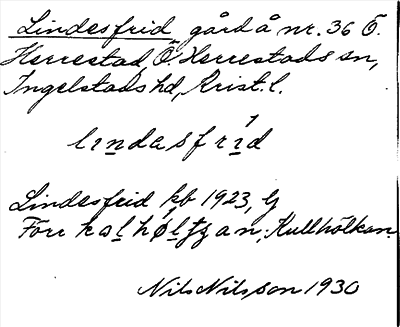 Lindesfrid, gård å nr. 36 Ö.
Herrestad, Ö Herrestads sn,
Ingelstads hd, Krist. l.
lındasfrı̀d
Lindesfrid kb 1923, Lj
Förr kalhøltzan; Kullhölkan.
Nils Nilsson 1930